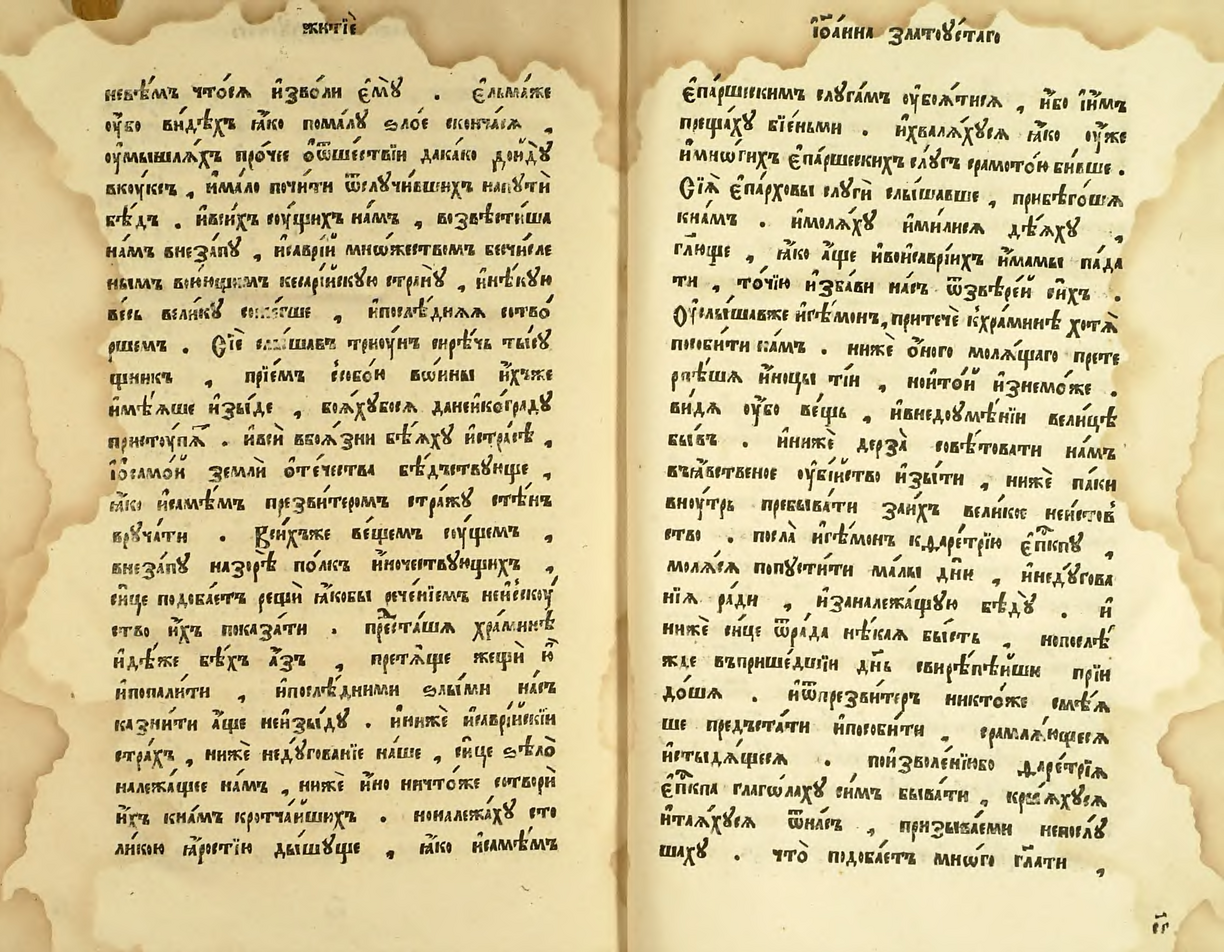 житїѐ
невѣ́мъ что́сѧ и҆зво́ли є҆мꙋ̀ . є҆льма́же
ᲂу҆̀бо ви́дѣхъ ꙗ҆́ко пома́лꙋ ѕло́е сконча́сѧ ,
ᲂу҆мышлѧ́хъ про́чее ѡ҆ѿше́ствїи дака́ко дои́дꙋ
вкоу́ксъ , и҆ма́ло почи́ти ѿслꙋчи́вшихъ напꙋтѝ
бѣ́дъ . и҆всѝхъ соу́щихъ на́мъ , возвѣсти́ша
на́мъ внеза́пꙋ , и҆са́врїй мно́жествомъ бесчи́сле
нымъ вою́ющимъ кесарі́йскꙋю странꙋ̀ , и҆нѣ́кꙋю
весь вели́кꙋ сожегше , и҆послѣ́днѧѧ сотво́
ршемъ . Сїѐ слы́шавъ трноу́нъ сирѣ́чь ты́сꙋ
щникъ , прїе́мъ с̾собо́ю во́ины и҆́хъже
и҆мѣ́ѧше и҆зы́йде , боѧ́хꙋбосѧ данейкогра́дꙋ
пристоу́пѧ̀ . и҆всѝ вбоѧ́зни бѣ́ѧхꙋ и҆стра́сѣ ,
і҆ѡ҆само́й землѝ о҆те́чества бѣ́дствꙋюще ,
ꙗ҆́ко и҆самѣ́мъ презви́теромъ стра́жꙋ стѣ́нъ
врꙋча́ти . Всѝхъже ве́щемъ соу́щемъ ,
внеза́пꙋ назорѣ̀ по́лкъ и҆́ночествꙋющихъ ,
си́це подоба́етъ рещѝ ꙗ҆́кобы рече́нїемъ неи́скоу́
ство и҆́хъ показа́ти . преста́шѧ хра́минѣ
и҆дѣ́же бѣ́хъ а҆́зъ , претѧ́ще жещѝ ю҆̀
и҆попали́ти , и҆послѣ́дними ѕлы́ми на́съ
казни́ти а҆́ще неи҆зы́дꙋ . и҆нижѐ и҆саврі́йскїи
стра́хъ , нижѐ недꙋ́гованїе на́ше , си́це ѕѣлѡ̀
належа́щее на́мъ , нижѐ и҆́но ничто́же сотворѝ
и҆́хъ кна́мъ кротча́йшихъ . ноналежа́хꙋ сто
ли́кою ꙗ҆́ростїю ды́шꙋще , ꙗ҆́ко и҆самѣ́мъ
і҆ѡа́нна златоꙋ́стагѡ
є҆па́ршескимъ слꙋга́мъ ᲂу҆боѧ́тисѧ , и҆́бо і҆и҆̀мъ
преща́хꙋ бїе́ньми . и҆хвалѧ́хꙋсѧ ꙗ҆́ко ᲂу҆́же
и҆мно́гихъ є҆па́ршескихъ слꙋ́гъ срамото́ю би́вше .
Сїѧ̀ є҆па́рховы слꙋгѝ слы́шавше , прибѣго́шѧ
кна́мъ . и҆молѧ́хꙋ и҆мили́сѧ дѣ́ѧхꙋ ,
гл҃юще , ꙗ҆́ко а҆́ще и҆вои҆саврі́ихъ и҆́мамы па́да
ти , то́чїю и҆зба́ви на́съ ѿзвѣре́й си́хъ .
Оу҆слы́шавже и҆ге́монъ, притечѐ к̾хра́минѣ хотѧ̀
пособи́ти на́мъ . нижѐ о҆́ного молѧ́щаго прете
рпѣ́шѧ и҆́ноцы ті́и , нои҆то́й и҆знемо́же .
ви́дѧ ᲂу҆́бо ве́щь , и҆внедоꙋмѣ́нїи вели́цѣ
бы́въ . и҆нижѐ дерза̀ совѣ́товати на́мъ
въꙗ҆́вственое ᲂу҆бі́йство и҆зы́ти , нижѐ па́ки
вноу́трь пребыва́ти за́ихъ вели́кое неи́стов
ство . посла̀ и҆ге́монъ кдаре́трїю є҆пⷭ҇кпꙋ ,
молѧ́сѧ попꙋсти́ти ма́лы дни̑ , и҆недꙋ́гова
нїѧ ра́ди , и҆заналежа́щꙋю бѣ́дꙋ . и҆
нижѐ си́це ѿра́да нѣ́каѧ бы́сть , нопослѣ́
жде въприше́дшїи дн҃ь свирѣ́пѣйши прїи
до́шѧ . и҆ѿпрезви́теръ никто́же смѣ́ѧ
ше предъста́ти и҆пособи́ти , срамлѧ́ющесѧ
и҆стыдѧ́щесѧ . пои҆зволе́нїюбо даре́трїѧ
є҆пⷭ҇кпа глаго́лахꙋ си́мъ быва́ти , крыѧ́хꙋсѧ
и҆таѧ́хꙋсѧ ѿна́съ , призыва́еми непослꙋ́
шахꙋ . что̀ подоба́етъ мно́го гл҃ати ,